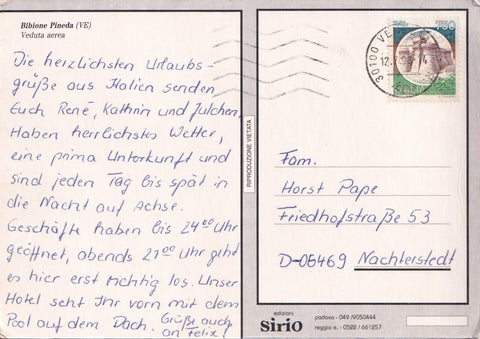 Bibione Pineda (VE)
Veduta aerea
Die herzlichsten Urlaubs-
grüße aus Italien senden
Euch René, Kathrin und Julchen.
Haben herrlichstes Wetter,
eine prima Unterkunft und
sind jeden Tag bis spät in
die Nacht auf Achse.
Geschäfte haben bis 24⁰⁰ Uhr
geöffnet, abends 21⁰⁰ Uhr geht
es hier erst richtig los. Unser
Hotel seht Ihr vorn mit dem
Pool auf dem Dach. Grüße auch
an Felix!
RIPRODUZIONE VIETATA
750
30100 VE
Fam.
Horst Pape
Friedhofstraße 53
D-06469 Nachterstedt
edizioni
sirio
padova - 049/9050444
reggio e. - 0522/661257